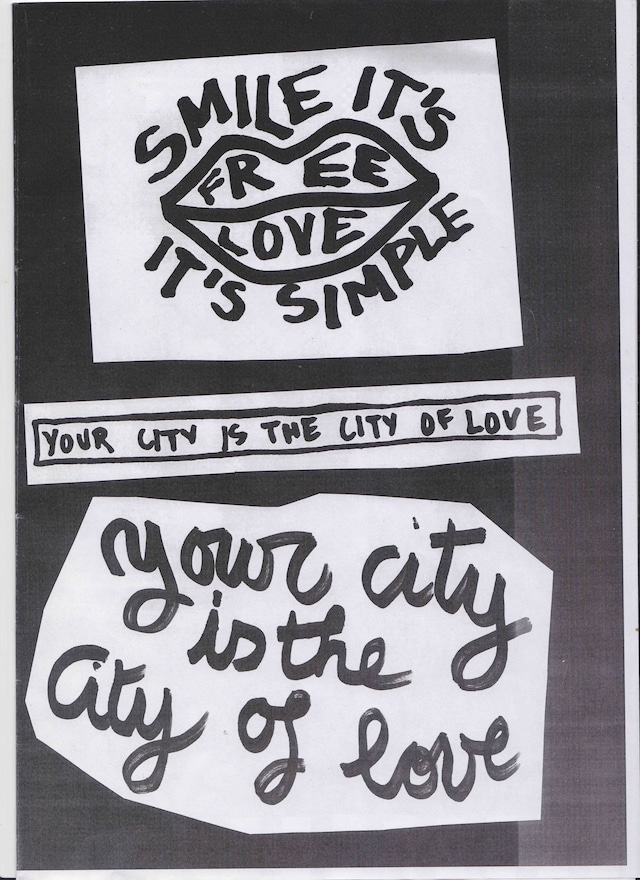 SMILE IT'S
FREE
LOVE
IT'S SIMPLE
YOUR CITY IS THE CITY OF LOVE
your city
is the
City of love